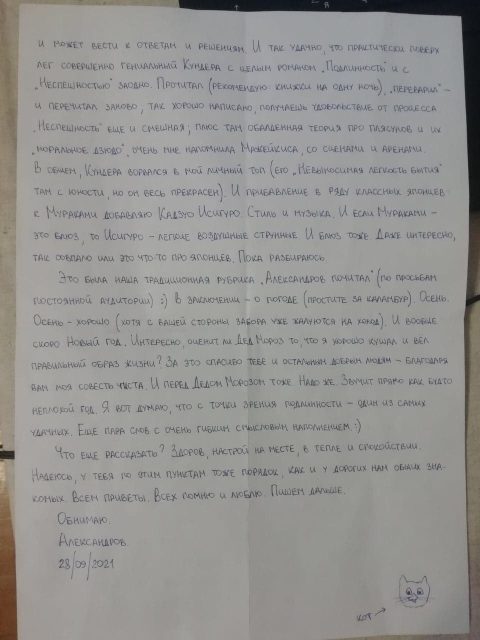 и может вести к ответам и решениям. И так удачно, что практически поверх
лег совершенно гениальный Кундера с целым романом „Подлинность" и с
„Неспешностью" заодно. Прочитал (рекомендую: книжки на одну ночь), „переварил" –
и перечитал заново, так хорошо написано, получаешь удовольствие от процесса
„Неспешность" еще и смешная, плюс там обалденная теория про плясунов и их
„моральное дзюдо", очень мне напомнила Мажейкиса, со сценами и аренами.
В общем, Кундера ворвался в мой личный топ (его „Невыносимая легкость бытия"
там с юности, но он весь прекрасен). И прибавление в ряду классных японцев:
к Мураками добавляю Кадзуо Исигуро. Стиль и музыка. И если Мураками –
это блюз, то Исигуро – легкие воздушные струнные. И блюз тоже. Даже интересно,
так совпало или это что-то про японцев. Пока разбираюсь
Это была наша традиционная рубрика „Александров почитал" (по просьбам
постоянной аудитории) :) В заключении – о погоде (простите за каламбур). Осень.
Осень – хорошо (хотя с вашей стороны забора уже жалуются на холод). И вообще
скоро Новый год. Интересно, оценит ли Дед Мороз то, что я хорошо кушал и вёл
правильный образ жизни? За это спасибо тебе и остальным добрым людям – благодаря
вам моя совесть чиста. И перед Дедом Морозом тоже. Надо же. Звучит прямо как будто
неплохой год. Я вот думаю, что с точки зрения подлинности – один из самых
удачных. Еще пара слов с очень гибким смысловым наполнением. :)
Что еще рассказать? Здоров, настрой на месте, в тепле и спокойствии.
Надеюсь, у тебя по этим пунктам тоже порядок, как и у дорогих нам общих зна-
комых. Всем приветы. Всех помню и люблю. Пишем дальше.
Обнимаю.
Александров.
28/09/2021
кот →